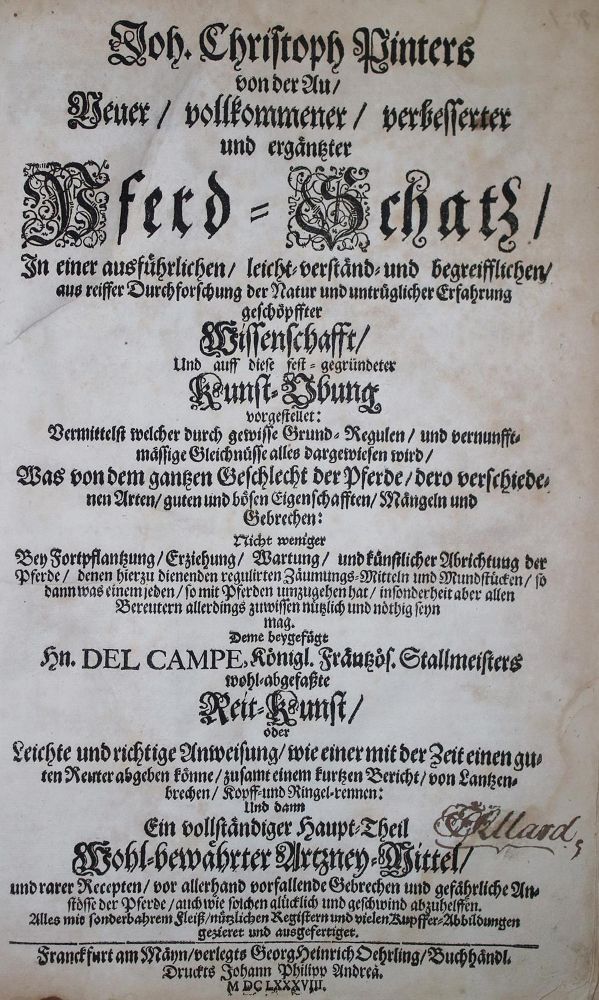 Joh. Christoph Pinters
von der Au/
Neuer/ vollkommener/ verbesserter
und ergäntzter
Pferd-Schatz/
In einer ausführlichen/ leicht-verständ- und begreifflichen/
aus reiffer Durchforschung der Natur und untrüglicher Erfahrung
geschöpffter
Wissenschafft/
Und auff diese fest-gegründeter
Kunst-Ubung
vorgestellet:
Vermittelst welcher durch gewisse Grund-Regulen/ und vernunfft-
mässige Gleichnüsse alles dargewiesen wird/
Was von dem gantzen Geschlecht der Pferde/ dero verschiede-
nen Arten/ guten und bösen Eigenschafften/ Mängeln und
Gebrechen:
Nicht weniger
Bey Fortpflantzung/ Erziehung/ Wartung/ und künstlicher Abrichtung der
Pferde/ denen hierzu dienenden regulirten Zäumungs-Mitteln und Mundstücken/ so
dann was einem jeden/ so mit Pferden umzugehen hat/ insonderheit aber allen
Bereutern allerdings zuwissen nützlich und nöthig seyn
mag.
Deme beygefügt
Hn. DEL CAMPE, Königl. Fräntzös. Stallmeisters
wohl-abgefaßte
Reit-Kunst/
oder
Leichte und richtige Anweisung/ wie einer mit der Zeit einen gu-
ten Reuter abgeben könne/ zusamt einem kurtzen Bericht/ von Lantzen-
brechen/ Kopff- und Ringel-rennen:
Und dann
Ein vollständiger Haupt-Theil
Wohl-bewährter Artzney-Mittel/
und rarer Recepten/ vor allerhand vorfallende Gebrechen und gefährliche An-
stösse der Pferde/ auch wie solchen glücklich und geschwind abzuhelffen.
Alles mit sonderbahrem Fleiß/ nützlichen Registern und vielen Kupffer-Abbildungen
gezieret und ausgefertiget.
Franckfurt am Mäyn/ verlegts Georg Heinrich Oehrling/ Buchhändl.
Druckts Johann Philipp Andreä.
M DC LXXXVIII.